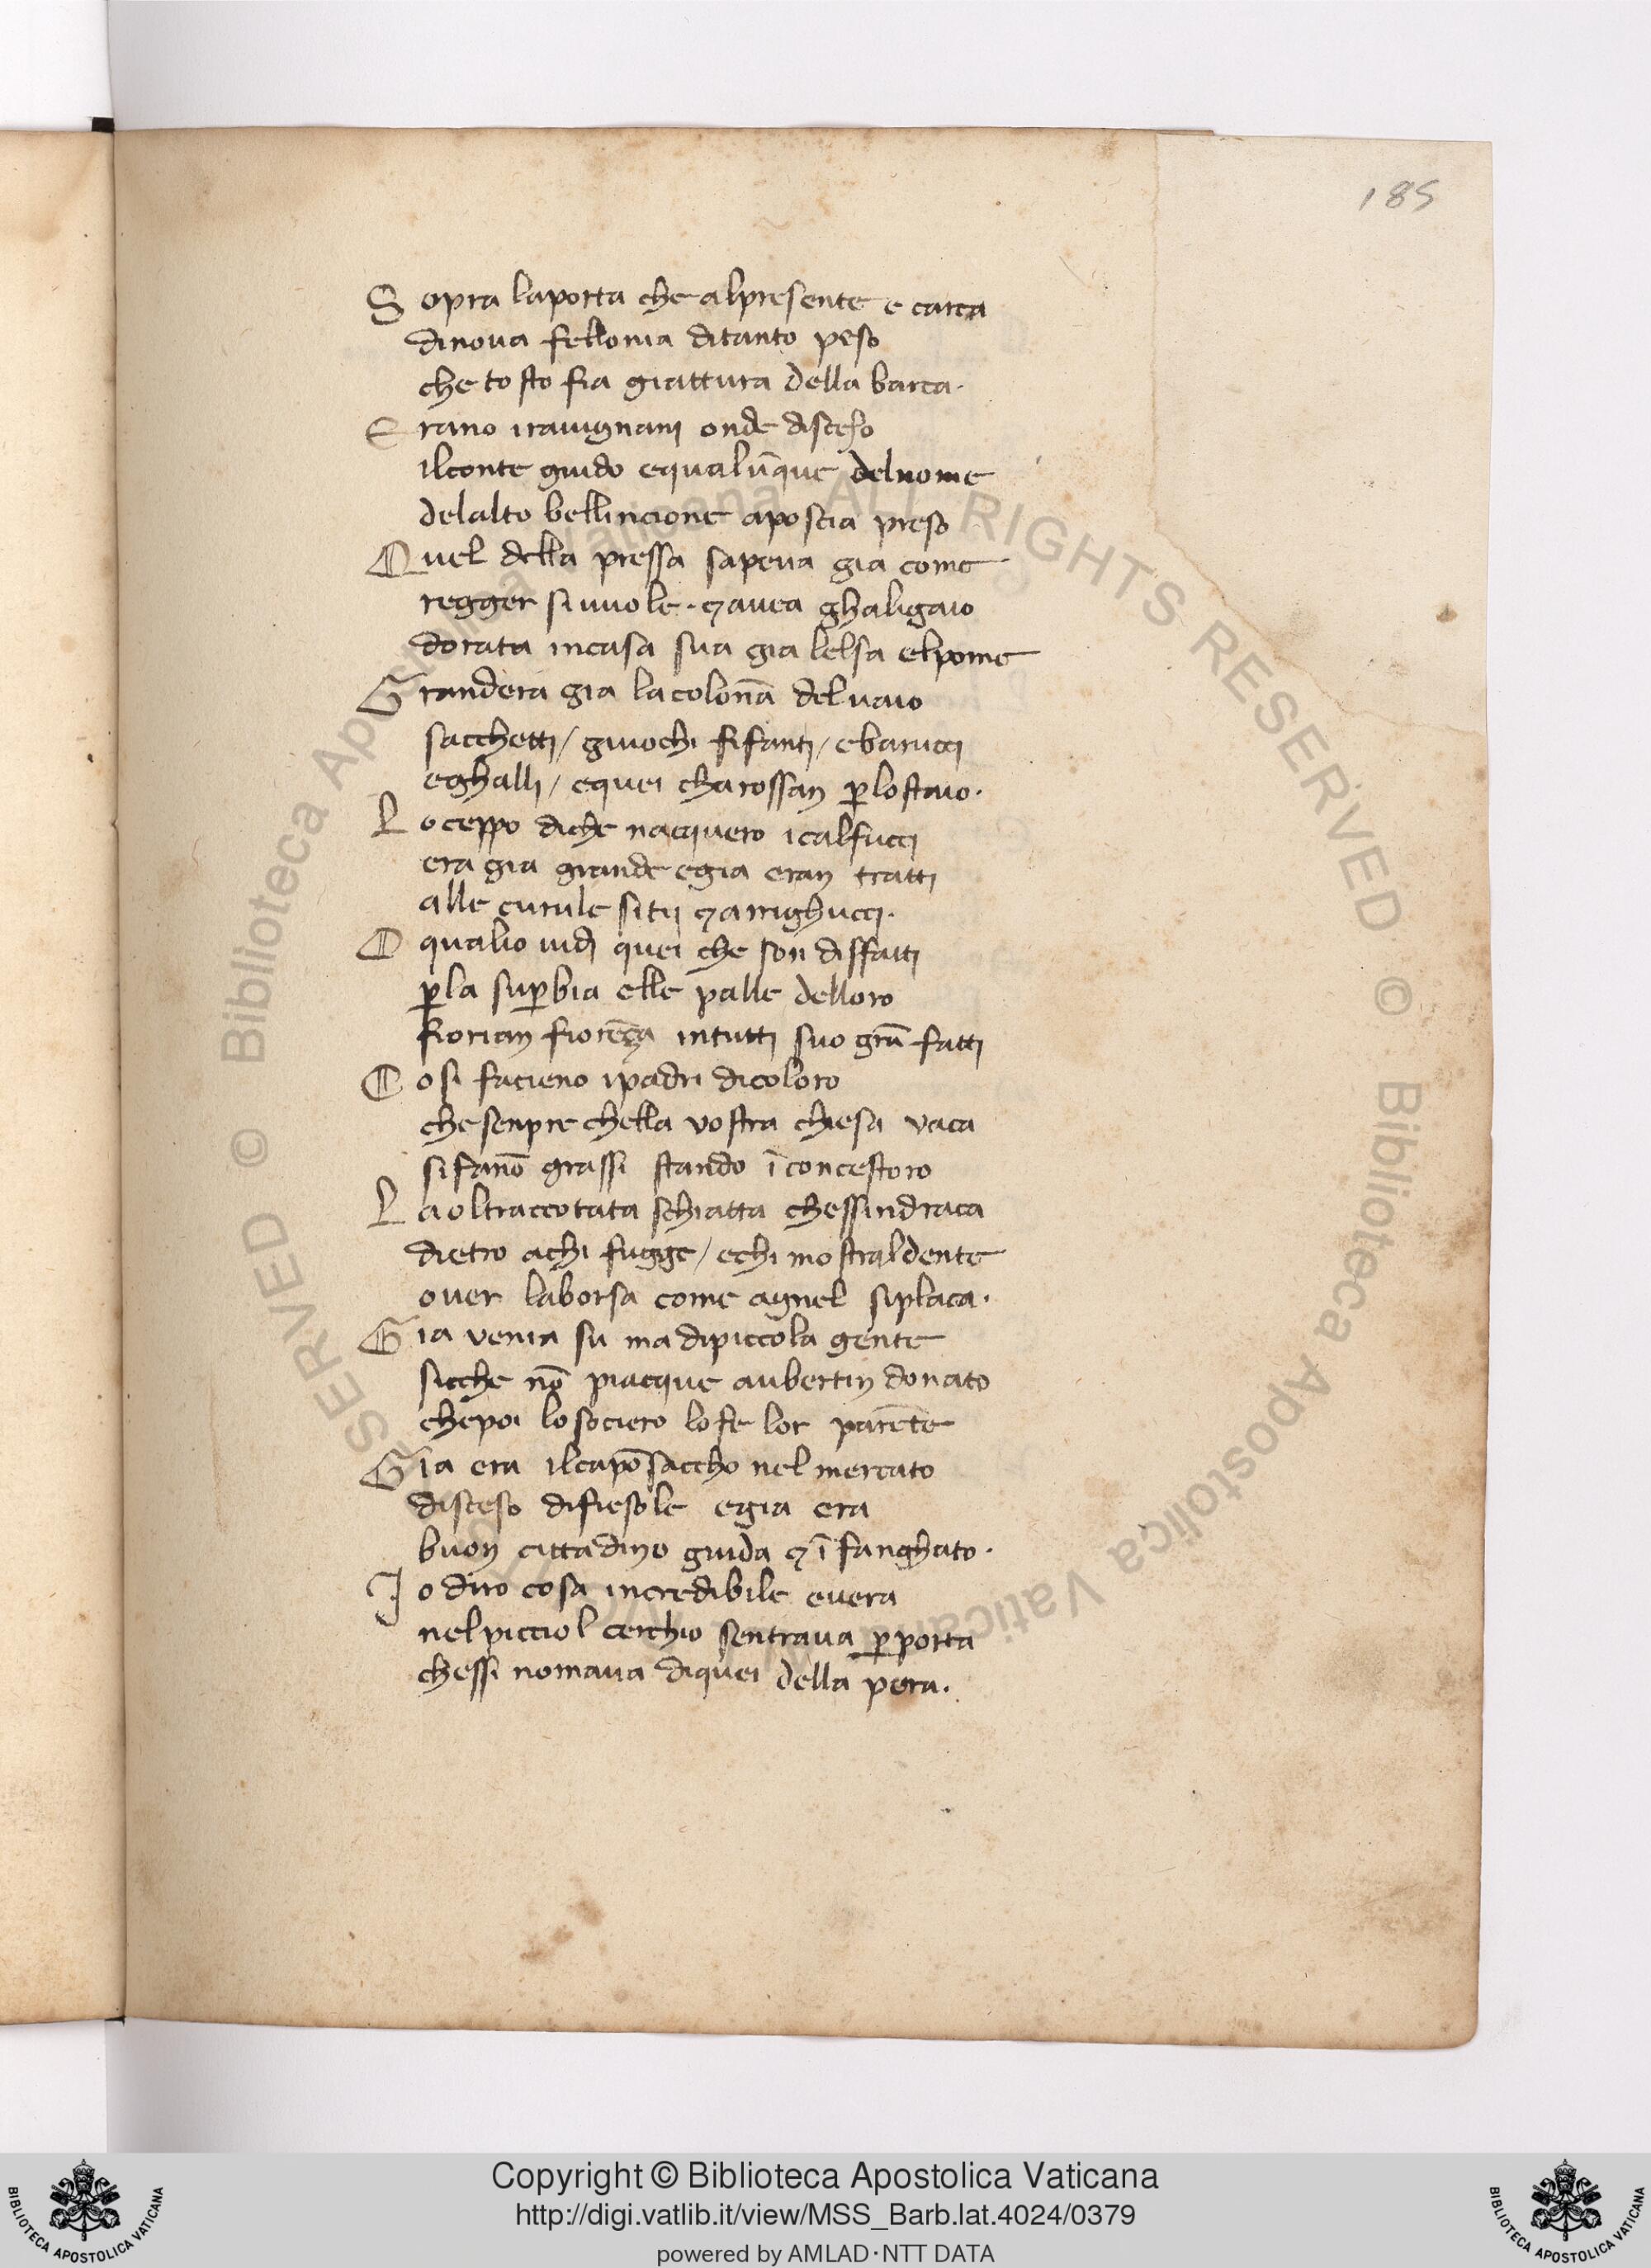 185
Sopra laporta che alpresente e carca
dinoua fellonia ditanto peso
che tosto fia giattura della barca.
Erano irauignani onde disceso
ilconte guido equalūque delnome
delalto bellincione aposcia preso
Quel della pressa sapeua gia come
regger siuuole. ⁊ auea ghaligaio
dorata incasa sua gia lelsa elpome
Grandera gia lacolonā deluaio
sacchetti / giuochi fifanti / ebarucci
eghalli / equei charossan ꝑlostaio.
Loceppo diche nacquero icalfucci
era gia grande egia eran tratti
alle curule sitii ⁊ arrighucci.
O qualio uidi quei che son disfatti
ꝑla suꝑbia elle palle delloro
fiorian fiorēça intutti suo grā fatti
Cosi facieno ipadri dicoloro
chesenpre chella vostra chiesa vaca
sifanō grassi stando ī concestoro
Laoltraccotata schiatta chessindraca
dietro achi fugge / echi mostraldente
ouer laborsa come agnel siplaca.
Gia venia su ma dipiccola gente
sicche nō piacque aubertin donato
chepoi lo sociero lofe lor parēte
Gia era ilcapōsaccho nel mercato
disceso difiesole egia era
buon cittadino guida ⁊ ī fanghato.
Io diro cosa incredibile euera
nelpicciol cerchio sentraua ꝑporta
chessi nomaua diquei della pera.
Copyright © Biblioteca Apostolica Vaticana
http://digi.vatlib.it/view/MSS_Barb.lat.4024/0379
powered by AMLAD·NTT DATA
BIBLIOTECA APOSTOLICA VATICANA
BIBLIOTECA APOSTOLICA VATICANA